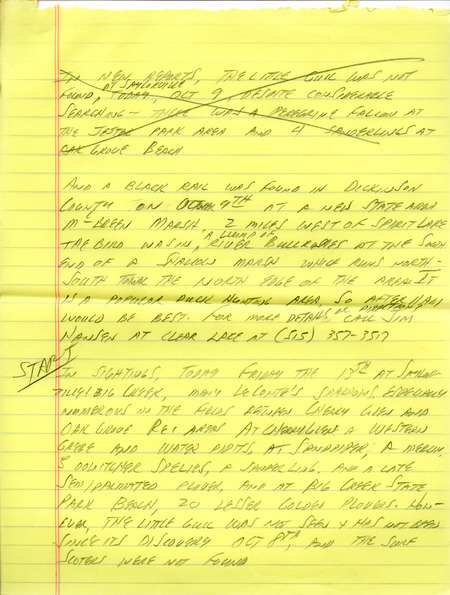 IN NEW REPORTS, THE LITTLE GULL WAS NOT
AT SAYLORVILLE
FOUND, TODAY, OCT 9, DESPITE CONSIDERABLE
SEARCHING - THERE WAS A PEREGRINE FALCON AT
THE JESTER PARK AREA AND 4 SANDERLINGS AT
OAK GROVE BEACH
AND A BLACK RAIL WAS FOUND IN DICKINSON
COUNTY ON OCTOBER 9TH AT A NEW STATE AREA
M-BREEN MARSH 2 MILES WEST OF SPIRIT LAKE
A CLUMP OF
THE BIRD WAS IN, RIVER BULLRUSHES AT THE SOUTH
END OF A SHALLOW MARSH WHICH RUNS NORTH-
SOUTH THE NORTH EDGE OF THE AREA IT
IS A POPULAR DUCK HUNTING AREA, SO AFTER
WOULD BE BEST. FOR MORE DETAILS OR DIRECTIONS CALL JIM
HANSEN AT CLEAR LAKE AT (515) 357-3517
START
IN SIGHTINGS, TODAY FRIDAY THE 13TH AT SAYLOR-
VILLE'S BIG CREEK, MANY LECONTE'S SPARROWS, ESPECIALLY
NUMEROUS IN THE FIELDS BETWEEN CHERRY GLEN AND
OAK GROVE REC AREAS AT CHERRY GLEN A WESTERN
GREBE AND WATER PIPITS, AT SANDPIPER; A MERLIN,
5 DOWITCHER SPECIES, A SANDERLING, AND A LATE
SEMIPALMATED PLOVER, AND AT BIG CREEK STATE
PARK BEACH, 20 LESSER GOLDEN PLOVERS. HOW-
EVER, THE LITTLE GULL WAS NOT SEEN & HAS NOT BEEN
SINCE ITS DISCOVERY OCT 8TH, AND THE SURF
SCOTERS WERE NOT FOUND